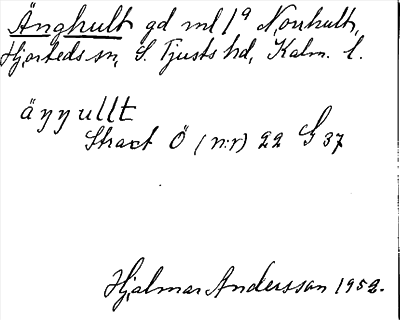 Änghult gd ml 1ª Norrhult,
Hjorteds sn, S. Tjusts hd, Kalm. l.
äŋŋullt
Straxt Ö (n:r) 22 G 37
Hjalmar Andersson 1952.